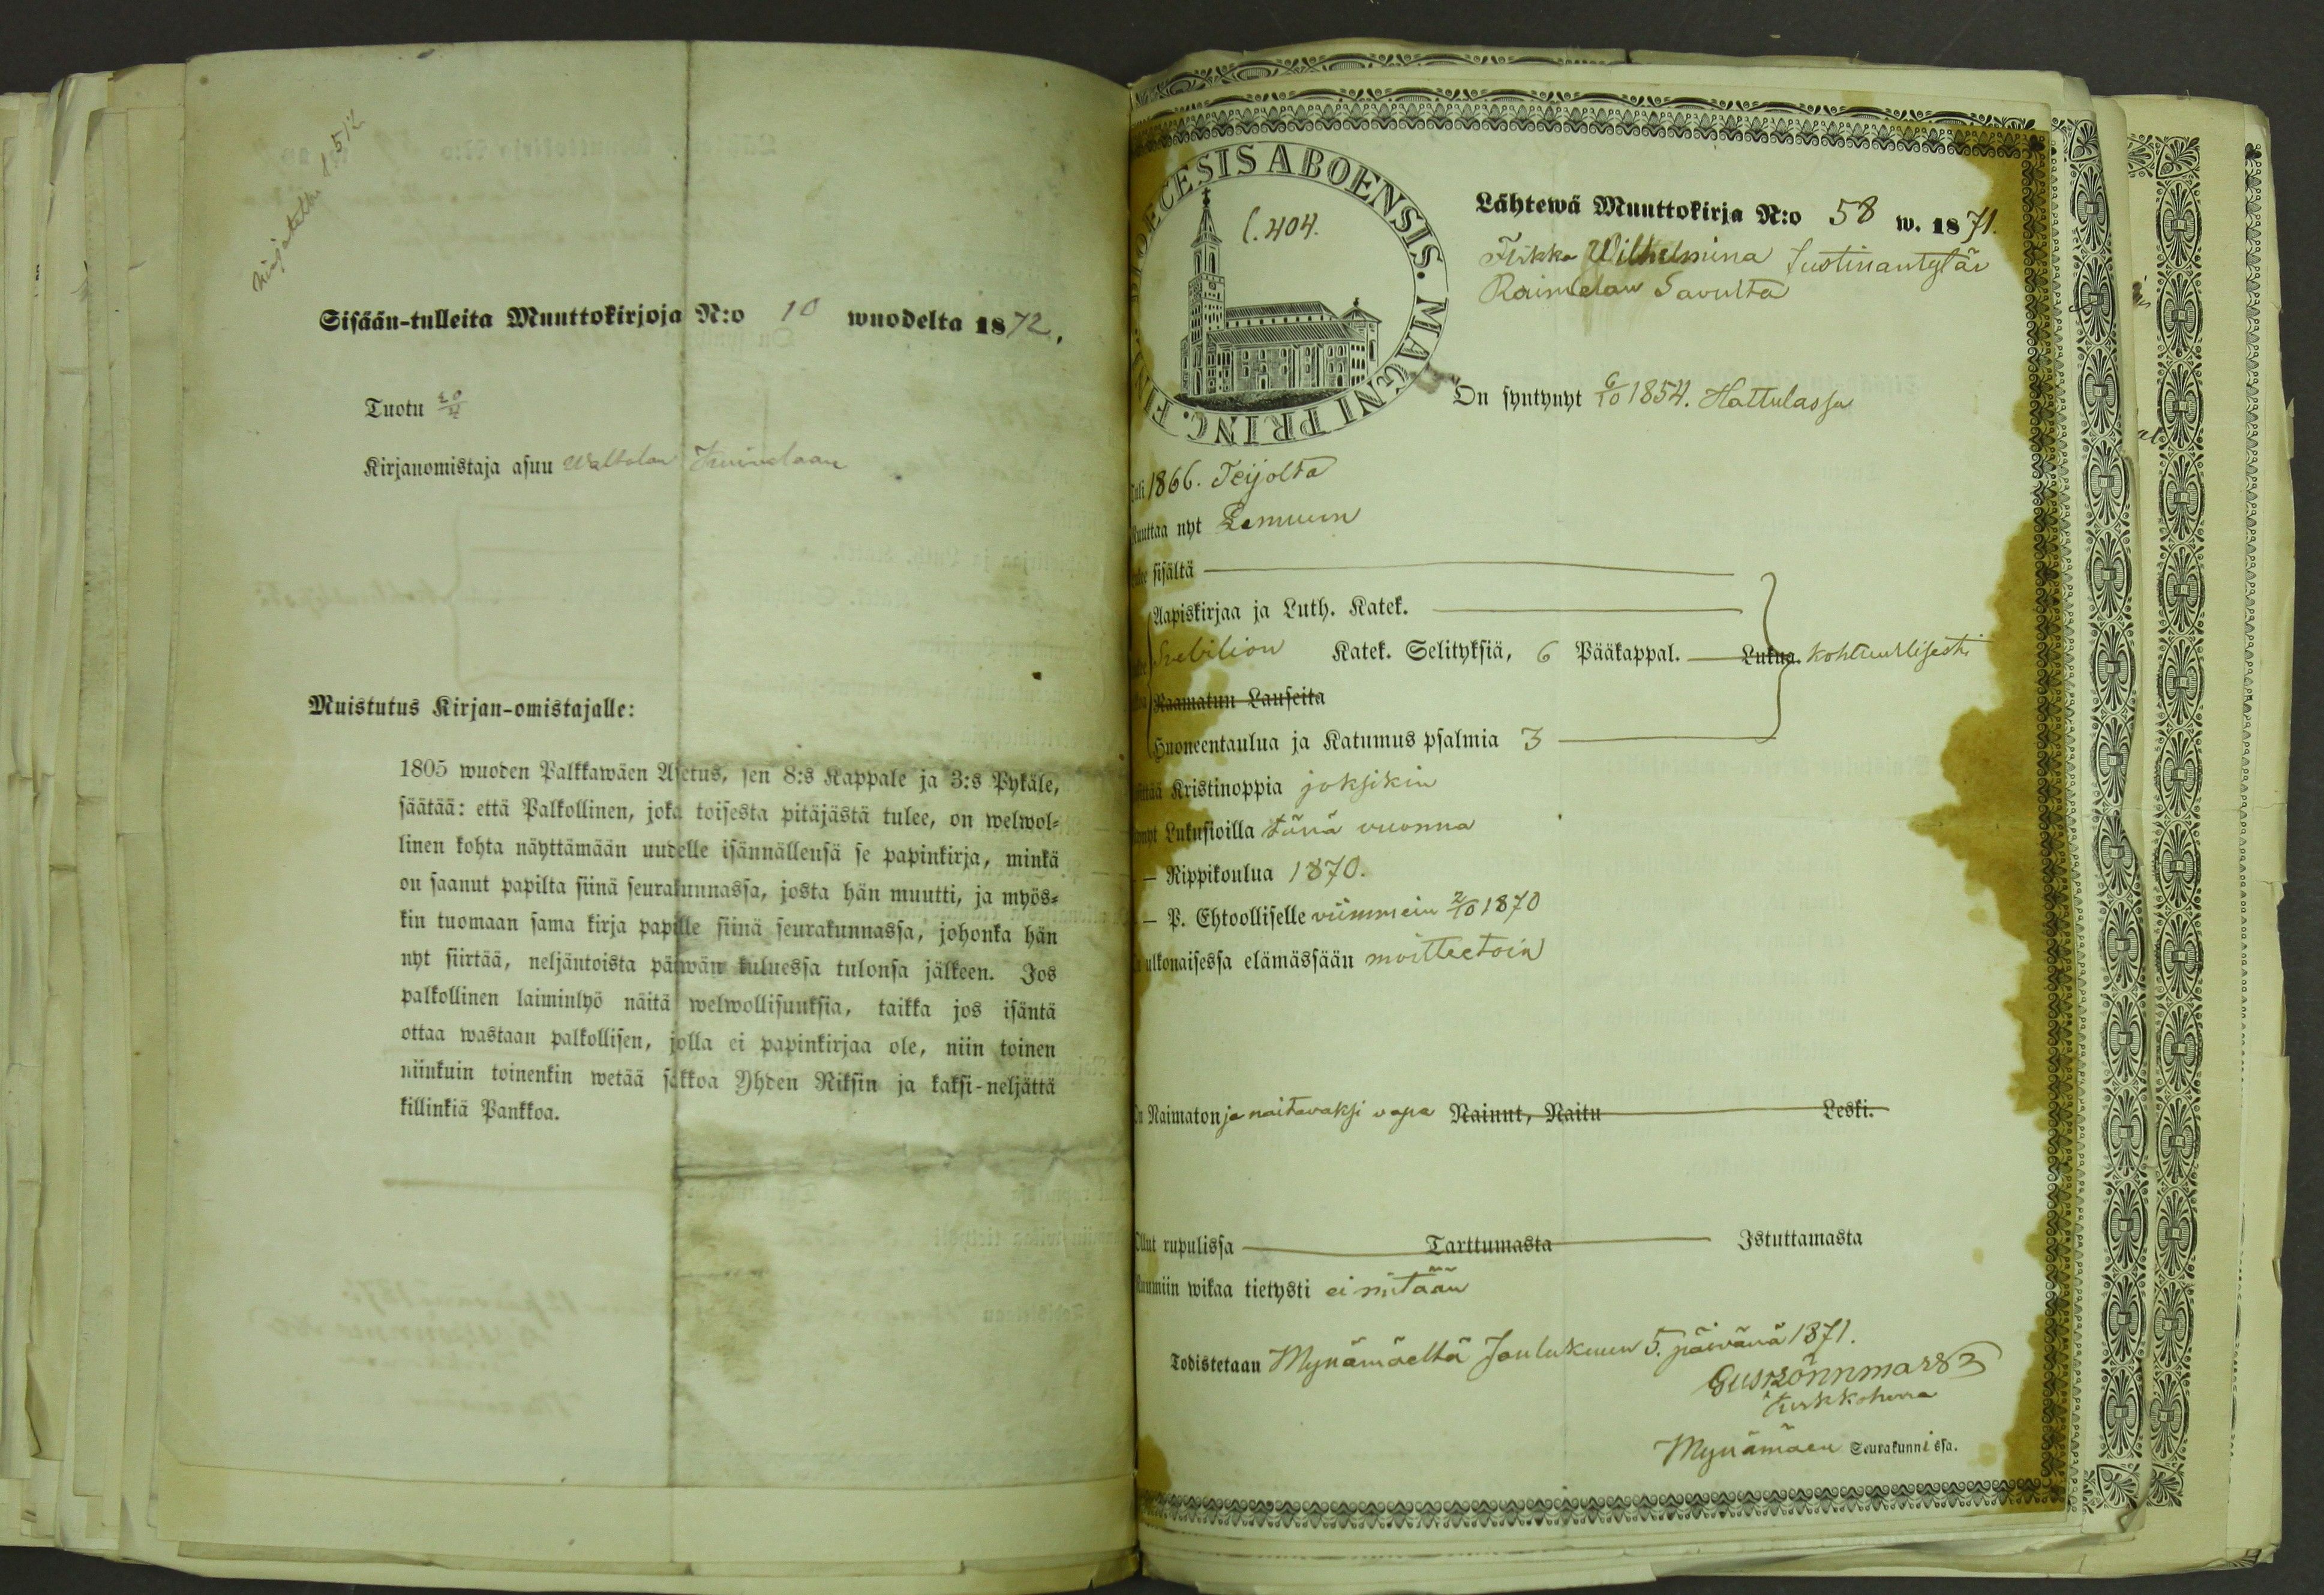 Sisään-tulleita Muuttokirjoja N:o 10 wuodelta 1872.
Tuotu
Kirjanomistaja asuu
Muistutus Kirjan-omistajalle:
1805 wuoden Palkkawäen Asetus, sen 8:s Kappale ja 3:s Pykäle,
säätää: että Palkollinen, joka toisesta pitäjästä tulee, on welwol-
linen kohta näyttämään uudelle isännällensä se papinkirja, minkä
on saanut papilta siinä seurakunnassa, josta hän muutti, ja myös-
kin tuomaan sama kirja papille siinä seurakunnassa, johonka hän
nyt siirtää, neljäntoista päiwän kuluessa tulonsa jälkeen. Jos
palkollinen laiminlyö näitä welwollisuuksia, taikka jos isäntä
ottaa wastaan palkollisen, jolla ei papinkirjaa ole, niin toinen
niinkuin toinenkin wetää sakkoa Yhden Riksin ja kaksi-neljättä
killinkiä Pankkoa.
DIOECESIS ABOENSIS. MAGNI PRINC. FINL.
l. 404.
Lähtewä Muuttokirja N:o 58 w. 1871.
Wilhelmina
On syntynyt 6/10 1854. Hattulassa
1866. Teijolta
nyt Lemuun
sisältä
Aapiskirjaa ja Luth. Katek.
Svebilion Katek. Selityksiä, 6 Pääkappal. Lukua. kohtuullisesti
Raamatun Lauseita
Huoneentaulua ja Katumus psalmia 3
Kristinoppia joksikin
Lukusioilla tänä vuonna
— Rippikoulua 1870.
— P. Ehtoolliselle viimmein 2/10 1870
ulkonaisessa elämässään moitteetoin
Naimaton ja naitavaksi vapa Nainut, Naitu Leski.
Ollut rupulissa Tarttumasta Istuttamasta
Ruumiin wikaa tietysti ei mitään
Todistetaan Mynämäeltä Joulukuun 5. päivänä 1871.
Kirkkoherra
Mynämäen Seurakunnissa.